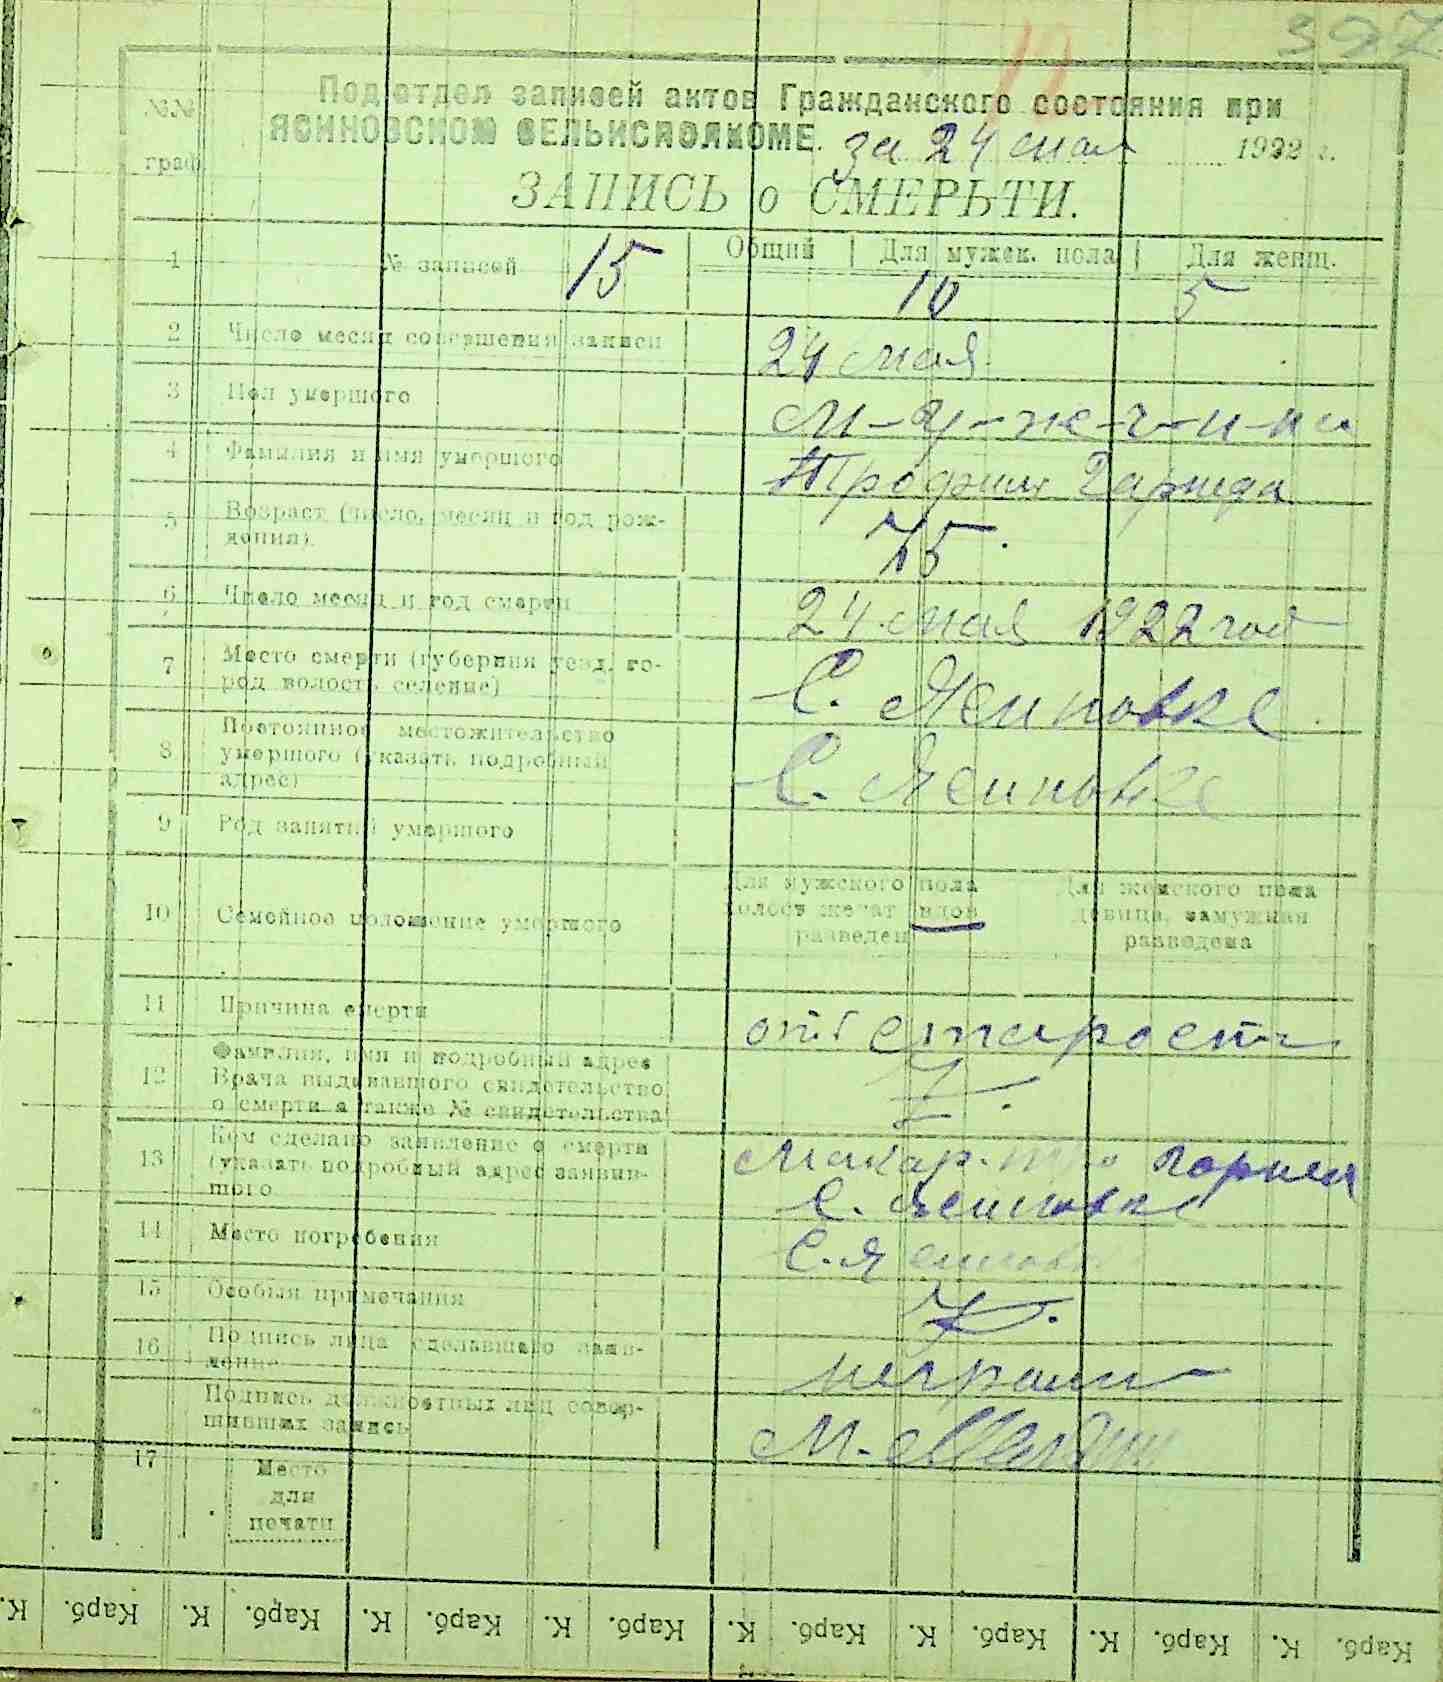 397
№№
граф
Подотдел записей актов Гражданского состояния при
ЯСИНОВСКОМ СЕЛЬИСПОЛКОМЕ. за 24 мая 1922 г.
ЗАПИСЬ о СМЕРЬТИ.
1 № записей 15 Общий Для мужск. пола Для женщ.
10 5
2 Число месяц совершения записи 24 мая
3 Пол умершого м-у-ж-ч-и-на
4 Фамилия и имя умершого Трофим
5 Возраст (число, месяц и год рож-
дения). 75.
6 Число месяц и год смерти 24 мая 1922 год
7 Место смерти (губерния уезд, го-
род волость селение) С. Ясиновке
8 Постоянное местожительство
умершого (указать подробный
адрес) С. Ясиновке
9 Род занятий умершого
10 Семейное положение умершого
Для мужского пола Для женского пола
холост женат вдов девица, замужняя
разведен разведена
11 Причина смерти от старости
12 Фамилия, имя и подробный адрес
Врача выдававшого свидетельство
о смерти а также № свидетельства
13 Кем сделано заявление о смерти
(указать подробный адрес заявив-
шого Макар
С. Ясиновке
14 Место погребения С. Ясиновке
15 Особыя примечания
16 Подпись лица сделавшаго заяв-
ление неграмот
Подпись должностных лиц совер-
шивших запись М.
17
Место
для
печати
К. Карб. К. Карб. К. Карб. К. Карб. К. Карб. К. Карб. К. Карб. К. Карб.